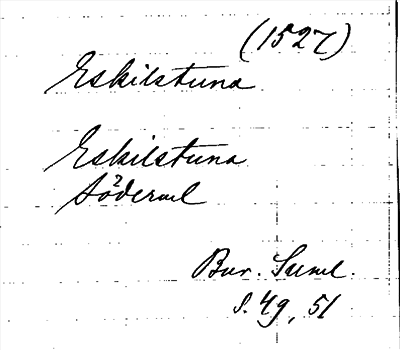 (1527)
Eskilstuna
Eskilstuna
Söderml
Bur. Saml.
s. 49, 51